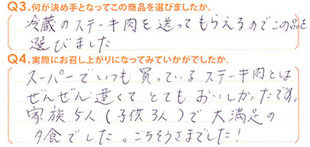 Q3.何が決め手となってこの商品を選びましたか。
冷蔵のステーキ肉を送ってもらえるのでこの品を
選びました
Q4.実際にお召し上がりになってみていかがでしたか。
スーパーでいつも買っているステーキ肉とは
ぜんぜん違くてとてもおいしかったです。
家族5人(子供3人)で大満足の
夕食でした。ごちそうさまでした!